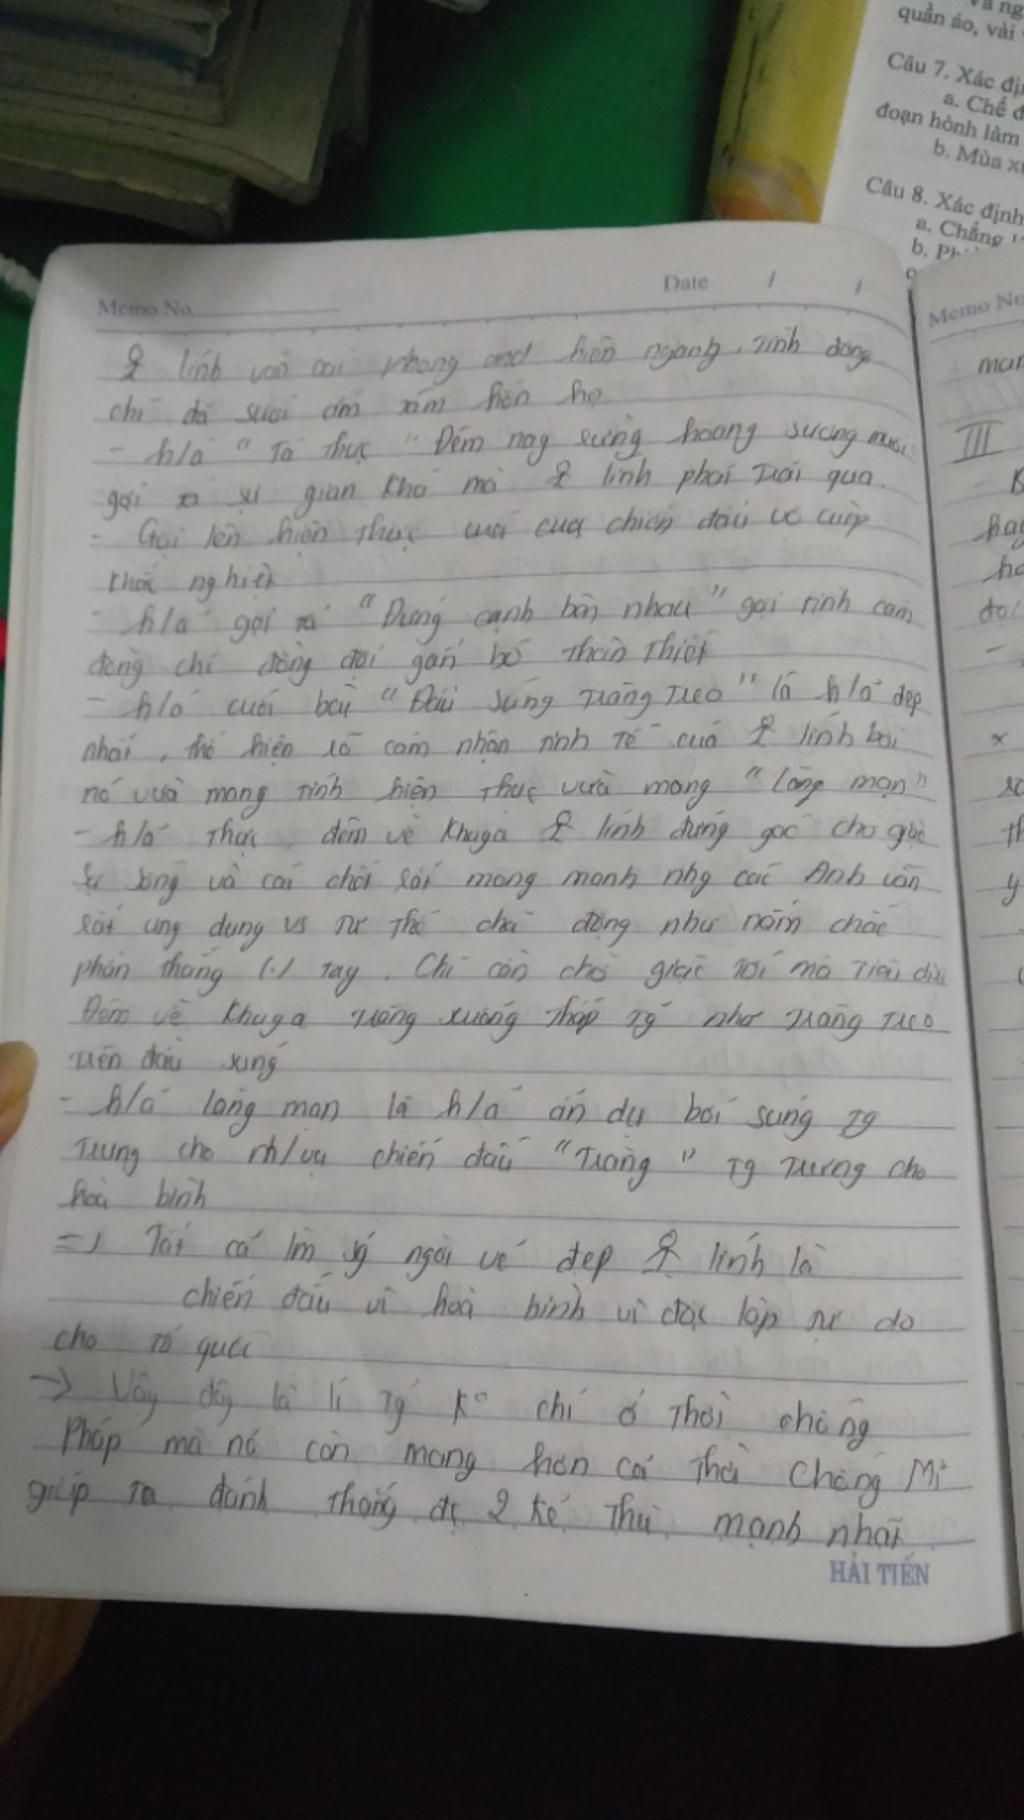 và ng
quần áo, vải
Câu 7. Xác đị
a. Chế đ
đoạn hònh làm
b. Mùa x
Câu 8. Xác định
a. Chẳng
b.
Memo No.
Date / /
Memo No
lính vẫn oai phong hiên ngang, tình đồng
chí đã sưởi ấm tâm hồn họ
- h/ả " Tả thực " Đêm nay rừng hoang sương muối
gợi ra sự gian khổ mà lính phải trải qua.
- Gợi lên hiện thực của chiến đấu vô cùng
khắc nghiệt
- h/ả gợi ra "Đứng cạnh bên nhau" gợi tình cảm
đồng chí đồng đội gắn bó thân thiết
- h/ả cuối bài "Đầu súng trăng treo" là h/ả đẹp
nhất, thể hiện rõ cảm nhận tinh tế của lính bởi
nó vừa mang tính hiện thực vừa mang "lãng mạn"
- h/ả thực, đêm về khuya lính đứng gác chờ giặc
sự sống và cái chết rất mong manh nhg các Anh vẫn
rất ung dung vs tư thế chủ động như nắm chắc
phần thắng (.) tay. Chỉ cần chờ giặc tới mà tiêu diệt
Đêm về khuya trăng xuống thấp tg như trăng treo
trên đầu súng
- h/ả lãng mạn là h/ả ẩn dụ bởi súng tg
trưng cho nh/vụ chiến đấu "Trăng" tg trưng cho
hoà bình
=> Tất cả ngời vẻ đẹp lính là
chiến đấu vì hoà bình vì độc lập tự do
cho tổ quốc
-> Vậy đây là lí tg k° chỉ ở thời chống
Pháp mà nó còn mang hơn cả thời Chống Mĩ
giúp ta đánh thắng đc 2 kẻ thù mạnh nhất
HẢI TIẾN
III
x
y